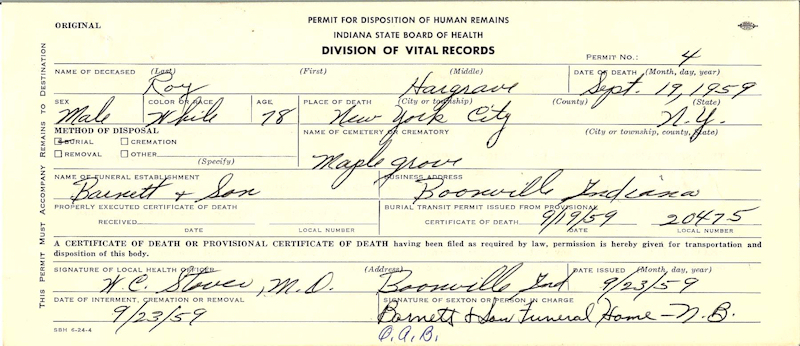 ORIGINAL
PERMIT FOR DISPOSITION OF HUMAN REMAINS
INDIANA STATE BOARD OF HEALTH
DIVISION OF VITAL RECORDS
PERMIT NO.: 4
THIS PERMIT MUST ACCOMPANY REMAINS TO DESTINATION
NAME OF DECEASED (Last) (First) (Middle) DATE OF DEATH (Month, day, year)
Roy Hargrave Sept. 19, 1959
SEX COLOR OR RACE AGE PLACE OF DEATH (City or township) (County) (State)
Male White 78 New York City N.Y.
METHOD OF DISPOSAL NAME OF CEMETERY OR CREMATORY (City or township, county, state)
BURIAL CREMATION
REMOVAL OTHER
(Specify)
Maple grove
NAME OF FUNERAL ESTABLISHMENT BUSINESS ADDRESS
Barnett & Son Boonville Indiana
PROPERLY EXECUTED CERTIFICATE OF DEATH BURIAL TRANSIT PERMIT ISSUED FROM PROVISIONAL
RECEIVED CERTIFICATE OF DEATH 9/19/59 20475
DATE LOCAL NUMBER DATE LOCAL NUMBER
A CERTIFICATE OF DEATH OR PROVISIONAL CERTIFICATE OF DEATH having been filed as required by law, permission is hereby given for transportation and
disposition of this body.
SIGNATURE OF LOCAL HEALTH OFFICER (Address) DATE ISSUED (Month, day, year)
W.C. Stover, M.D. Boonville Ind 9/23/59
DATE OF INTERMENT, CREMATION OR REMOVAL SIGNATURE OF SEXTON OR PERSON IN CHARGE
9/23/59 Barnett & Son Funeral Home - N.B.
SBH 6-24-4
O.A.B.